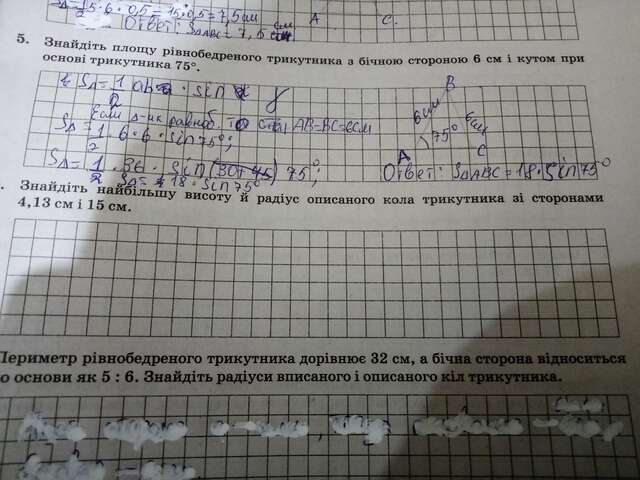 5·6·0,5 = 15·0,5 = 7,5 см
Ответ: S△ABC = 7,5 см
A C.
5. Знайдіть площу рівнобедреного трикутника з бічною стороною 6 см і кутом при
основі трикутника 75°.
S△ = 1/2 ab · sin γ
Если равноб. то AB=BC=6см
S△ = 1/2 6·6·sin 75°;
S△ = 1/2 · 36 · sin 75°;
S△ = 18 · sin 75°
B
6 см
6см
75°
A
C
Ответ: S△ABC = 18·Sin 75°
. Знайдіть найбільшу висоту й радіус описаного кола трикутника зі сторонами
4,13 см і 15 см.
Периметр рівнобедреного трикутника дорівнює 32 см, а бічна сторона відноситься
о основи як 5 : 6. Знайдіть радіуси вписаного і описаного кіл трикутника.